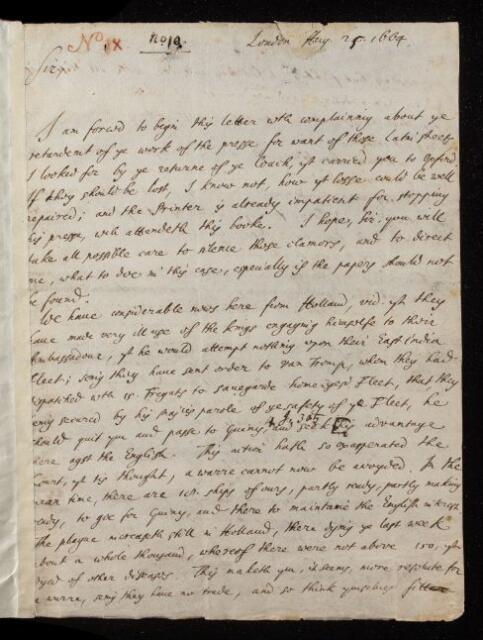 No IX no 10. London Aug. 25. 1664.
Sir,
I am forced to begin this letter wth complaining about ye
retardemt of ye work of the presse for want of those Latin sheets
I looked for by ye returne of ye Coach, yt carried you to Oxford
If they should be lost, I know not, how yt losse could be well
repaired; and the Printer is already impatient for stopping
his presse, wch attendeth this booke. I hope, Sir, you will
take all possible care to silence these clamors, and to direct
me, what to doe in this case, especially if the papers should not
be found.
We have considerable news here from Holland, vid. yt they
have made very ill use of the Kings engaging himselfe to their
Ambassadour, yt he would attempt nothing upon their East India
fleet; seing they have sent order to van Tromp, whom they had
dispatched with 15. Fregats to savegarde home yt Fleet, that they
being secured by his majties parole of ye safety of ye Fleet, he
should quit ym and passe to Guiny, and seek his advantage
there agst the English. This action hath so exasperated the
Court, yt tis thought, a warre cannot now be avoyded. In the
mean time, there are ships of ours, partly ready, partly making
ready, to goe for Guiny, and there to maintaine the English
The plague increaseth still in Holland, there dying ye last week
about a whole thousand, whereof there were not above 150, yt
dyed of other diseases. This maketh ym, it seems, more resolute for
a warre, seing they have no trade, and so think ymselves fitter